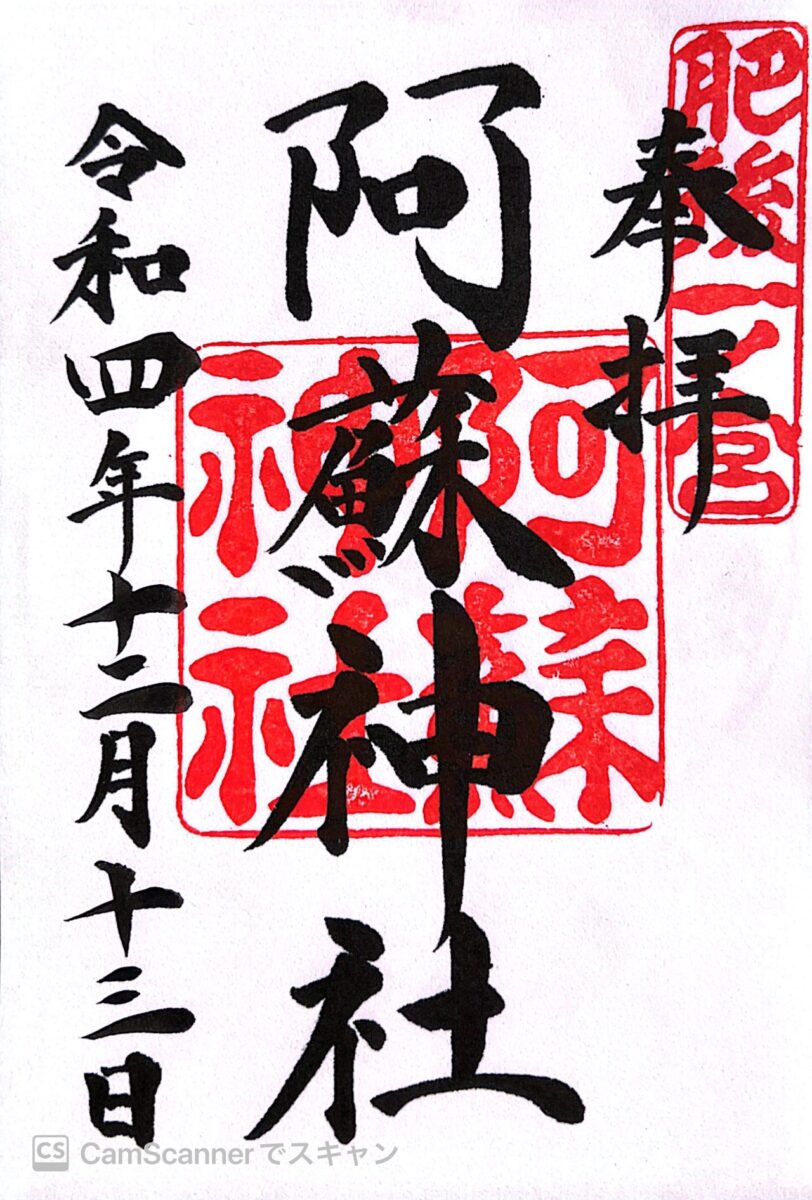 肥後一之宮
奉拝
阿蘇神社
阿蘇神社
令和四年十二月十三日
CS CamScanner でスキャン